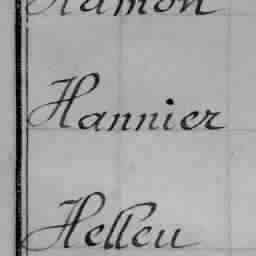 Hamon
Hannier
Helleu